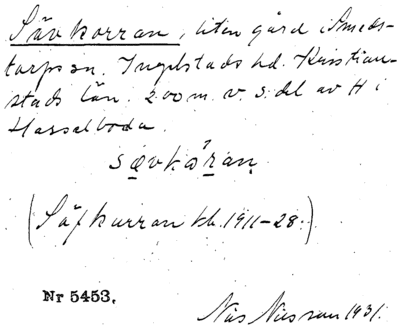 Sävkorran, liten gård i Smeds-
torps sn. Ingelstads hd. Kristian-
stads län. 200 m. v. s. del av H i
Hasselboda.
sævkåran.
(Säfkurran kb. 1911-28.)
Nr 5453.
Nils Nilsson 1931.